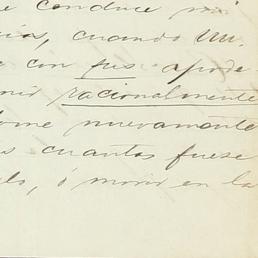 e conduce mi
cias, cuando Un.
e con sus apode-
racionalmente
nuevamente
s cuantas fuese
lo, ó morir en la